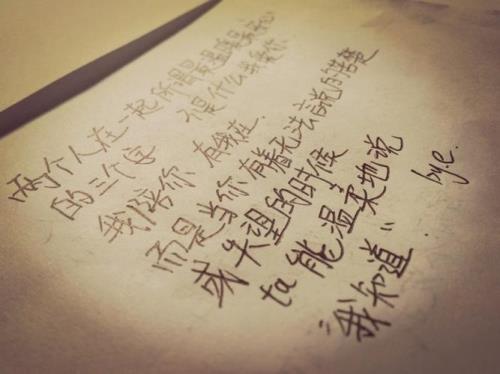 两个人在一起 所谓最温暖最安心
的三个字 不是什么我爱你
我陪你 有我在
而是当你有着无法言说的苦楚
或失望的时候
ta能温柔地说
“我知道”
bye.